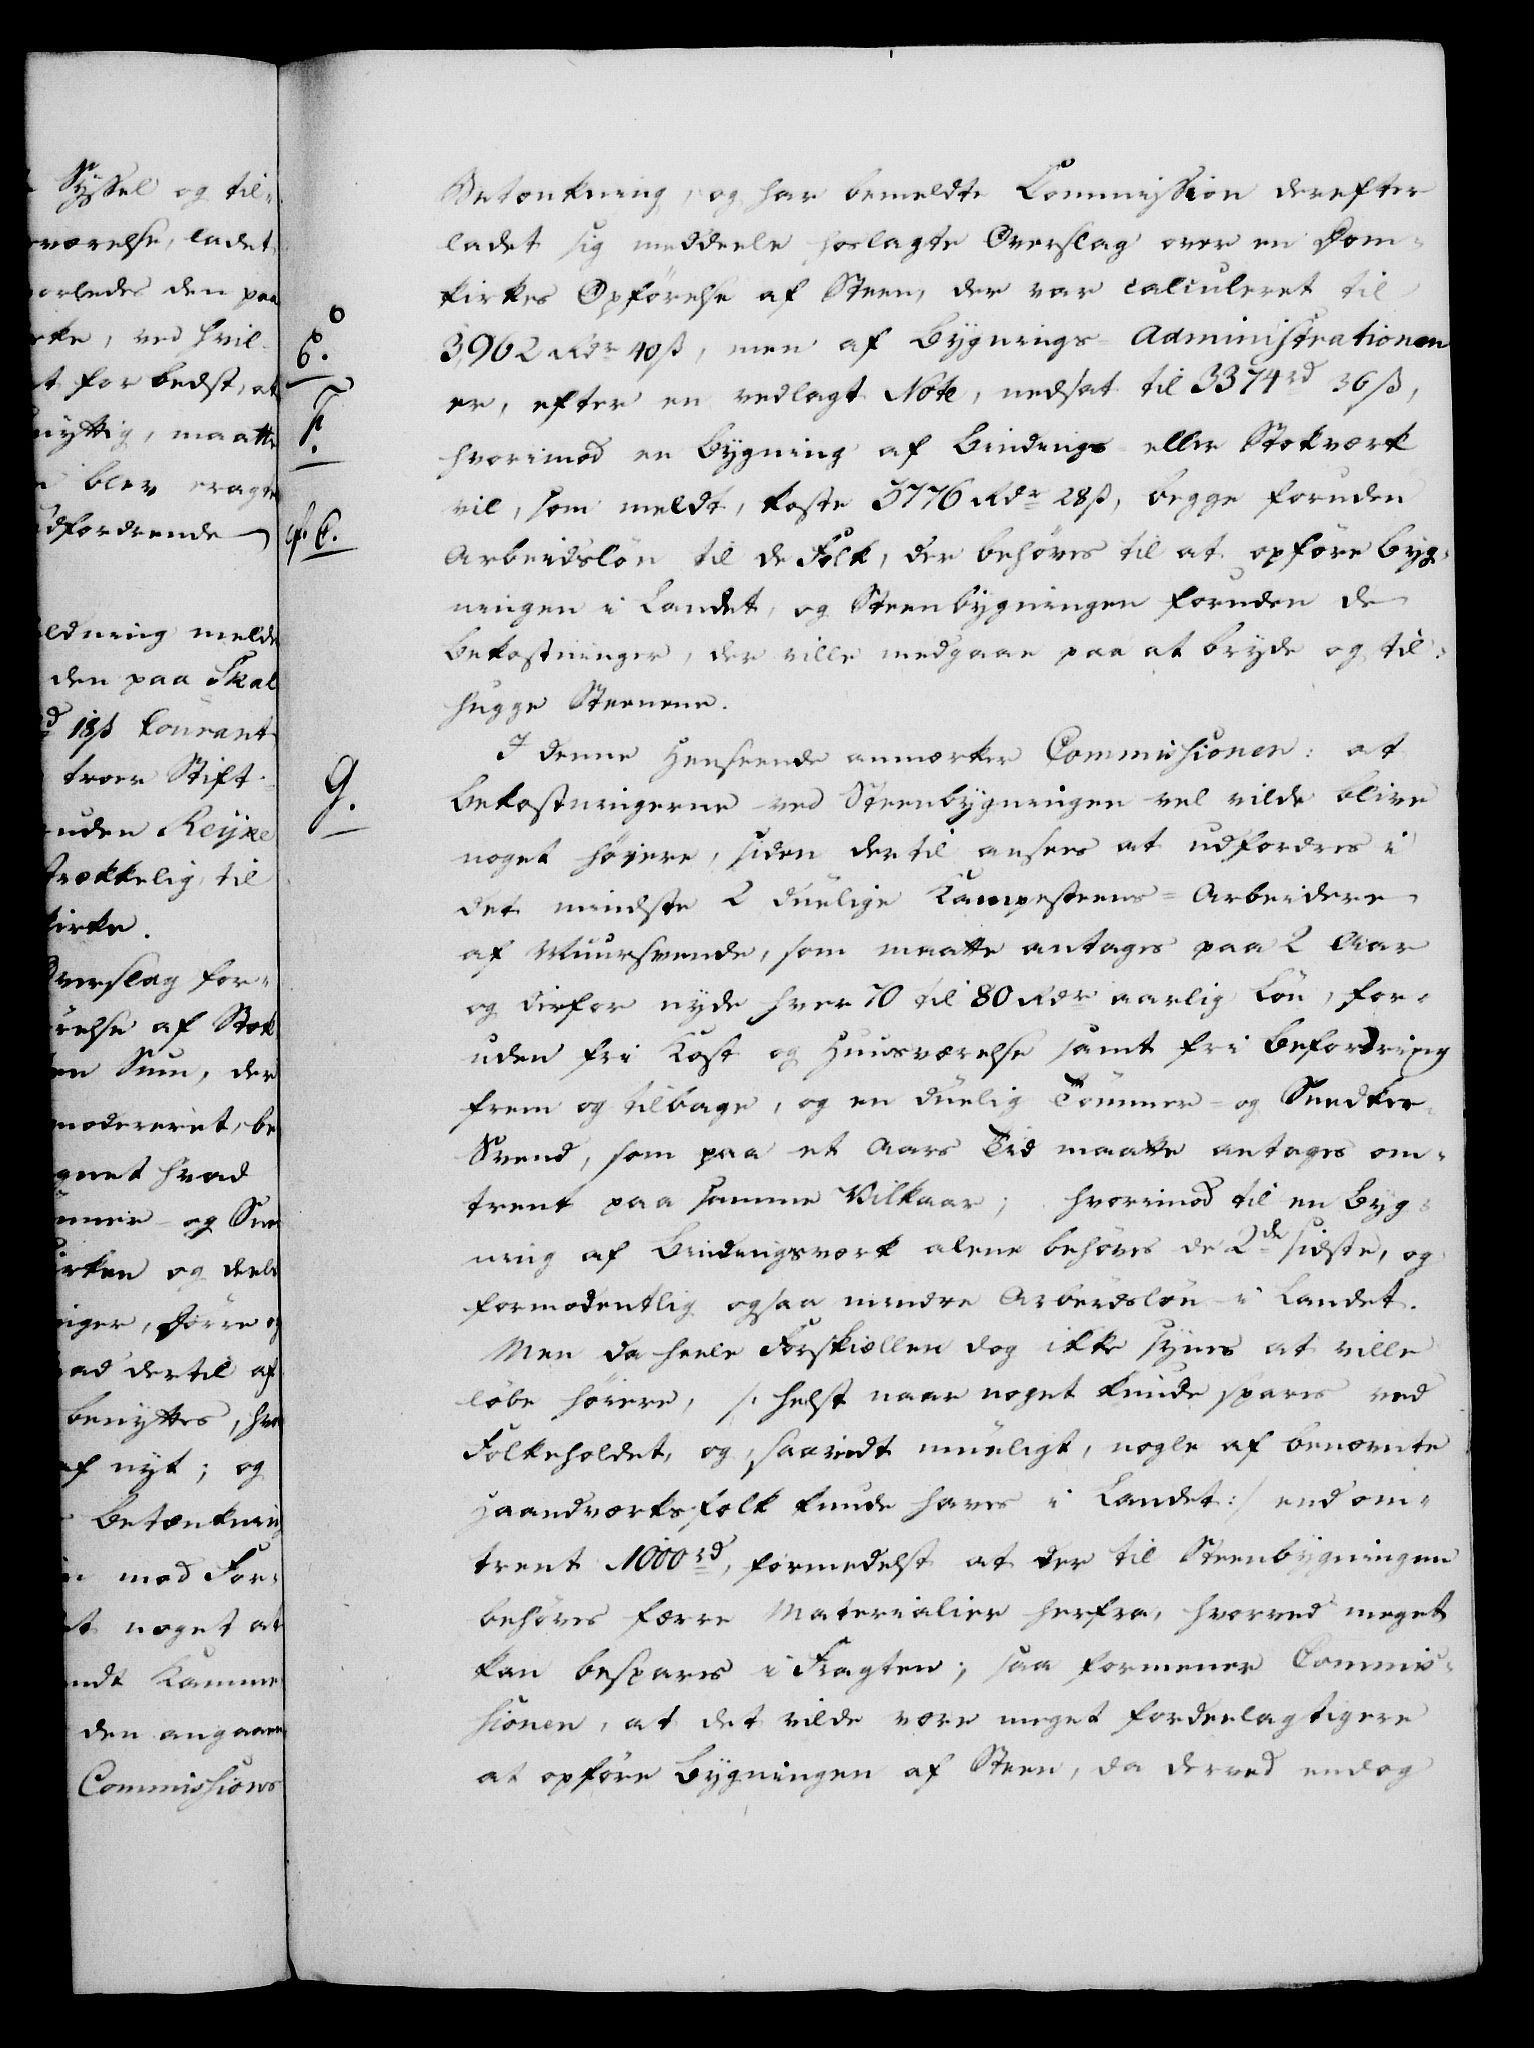 Syssel og til-
værelse, ladet
orledes den paa
rke, ved hvil-
t for bedst, at
nyttig, maatte
blev eragte
dfordrende
ldning melde
den paa Skal
18 ß Courant
troer Stift-
uden Reyke
trækkelig til
irke.
verslag for-
relse af Stok
en Sum, der
modereret, be
gnet hvad
mmer- og Sne
irken og deels
niger, Dörre og
ad dertil af
benyttes, hvo
af nyt; og
Betænkning
mod For-
t noget at
ndt Kamme
den angaaen
Commissions
E.
F.
cf. C.
G.
Betænkning, og har bemeldte Commission derefter
ladet sig meddeele hoslagte Overslag over en Dom-
kirkes Opförelse af Steen, der var calculeret til
3,962 Rdr 40 ß, men af Bygnings-Administrationen
er, efter en vedlagt Note, nedsat til 3374 rd 36 ß,
hvorimod en Bygning af Bindings- eller Stokværk
vil, som meldt, koste 3776 Rdr 28 ß, begge foruden
Arbeidslön til de Folk, der behöves til at opföre Byg-
ningen i Landet, og Steenbygningen foruden de
Bekostninger, der ville medgaae paa at bryde og til-
hugge Steenene.
I denne Henseende anmærker Commissionen: at
Bekostningerne ved Steenbygningen vel vilde blive
noget höiere, siden dertil ansees at udfordres i
det mindste 2 duelige Kampesteens-Arbeidere
af Muursvende, som maatte antages paa 2 Aar
og derfor nyde hver 70 til 80 Rdr aarlig Lön, for-
uden fri Kost og Huusværelse samt fri Befordring
frem og tilbage, og en duelig Tömmer- og Snedker-
Svend, som paa et Aars Tid maatte antages om-
trent paa samme Vilkaar; hvorimod til en Byg-
ning af Bindingsværk alene behöves de 2de sidste, og
formodentlig ogsaa mindre Arbeidslön i Landet.
Men da heele Forskiellen dog ikke synes at ville
löbe höiere, /: helst naar noget kunde spares ved
Folkeholdet, og, saavidt mueligt, nogle af benævnte
Haandværksfolk kunde haves i Landet :/ end om-
trent 1000 rd, formedelst at der til Steenbygningen
behöves færre Materialier herfra, hvorved meget
kan bespares i Fragten; saa formener Commis-
sionen, at det vilde være meget fordeelagtigere
at opföre Bygningen af Steen, da derved endog